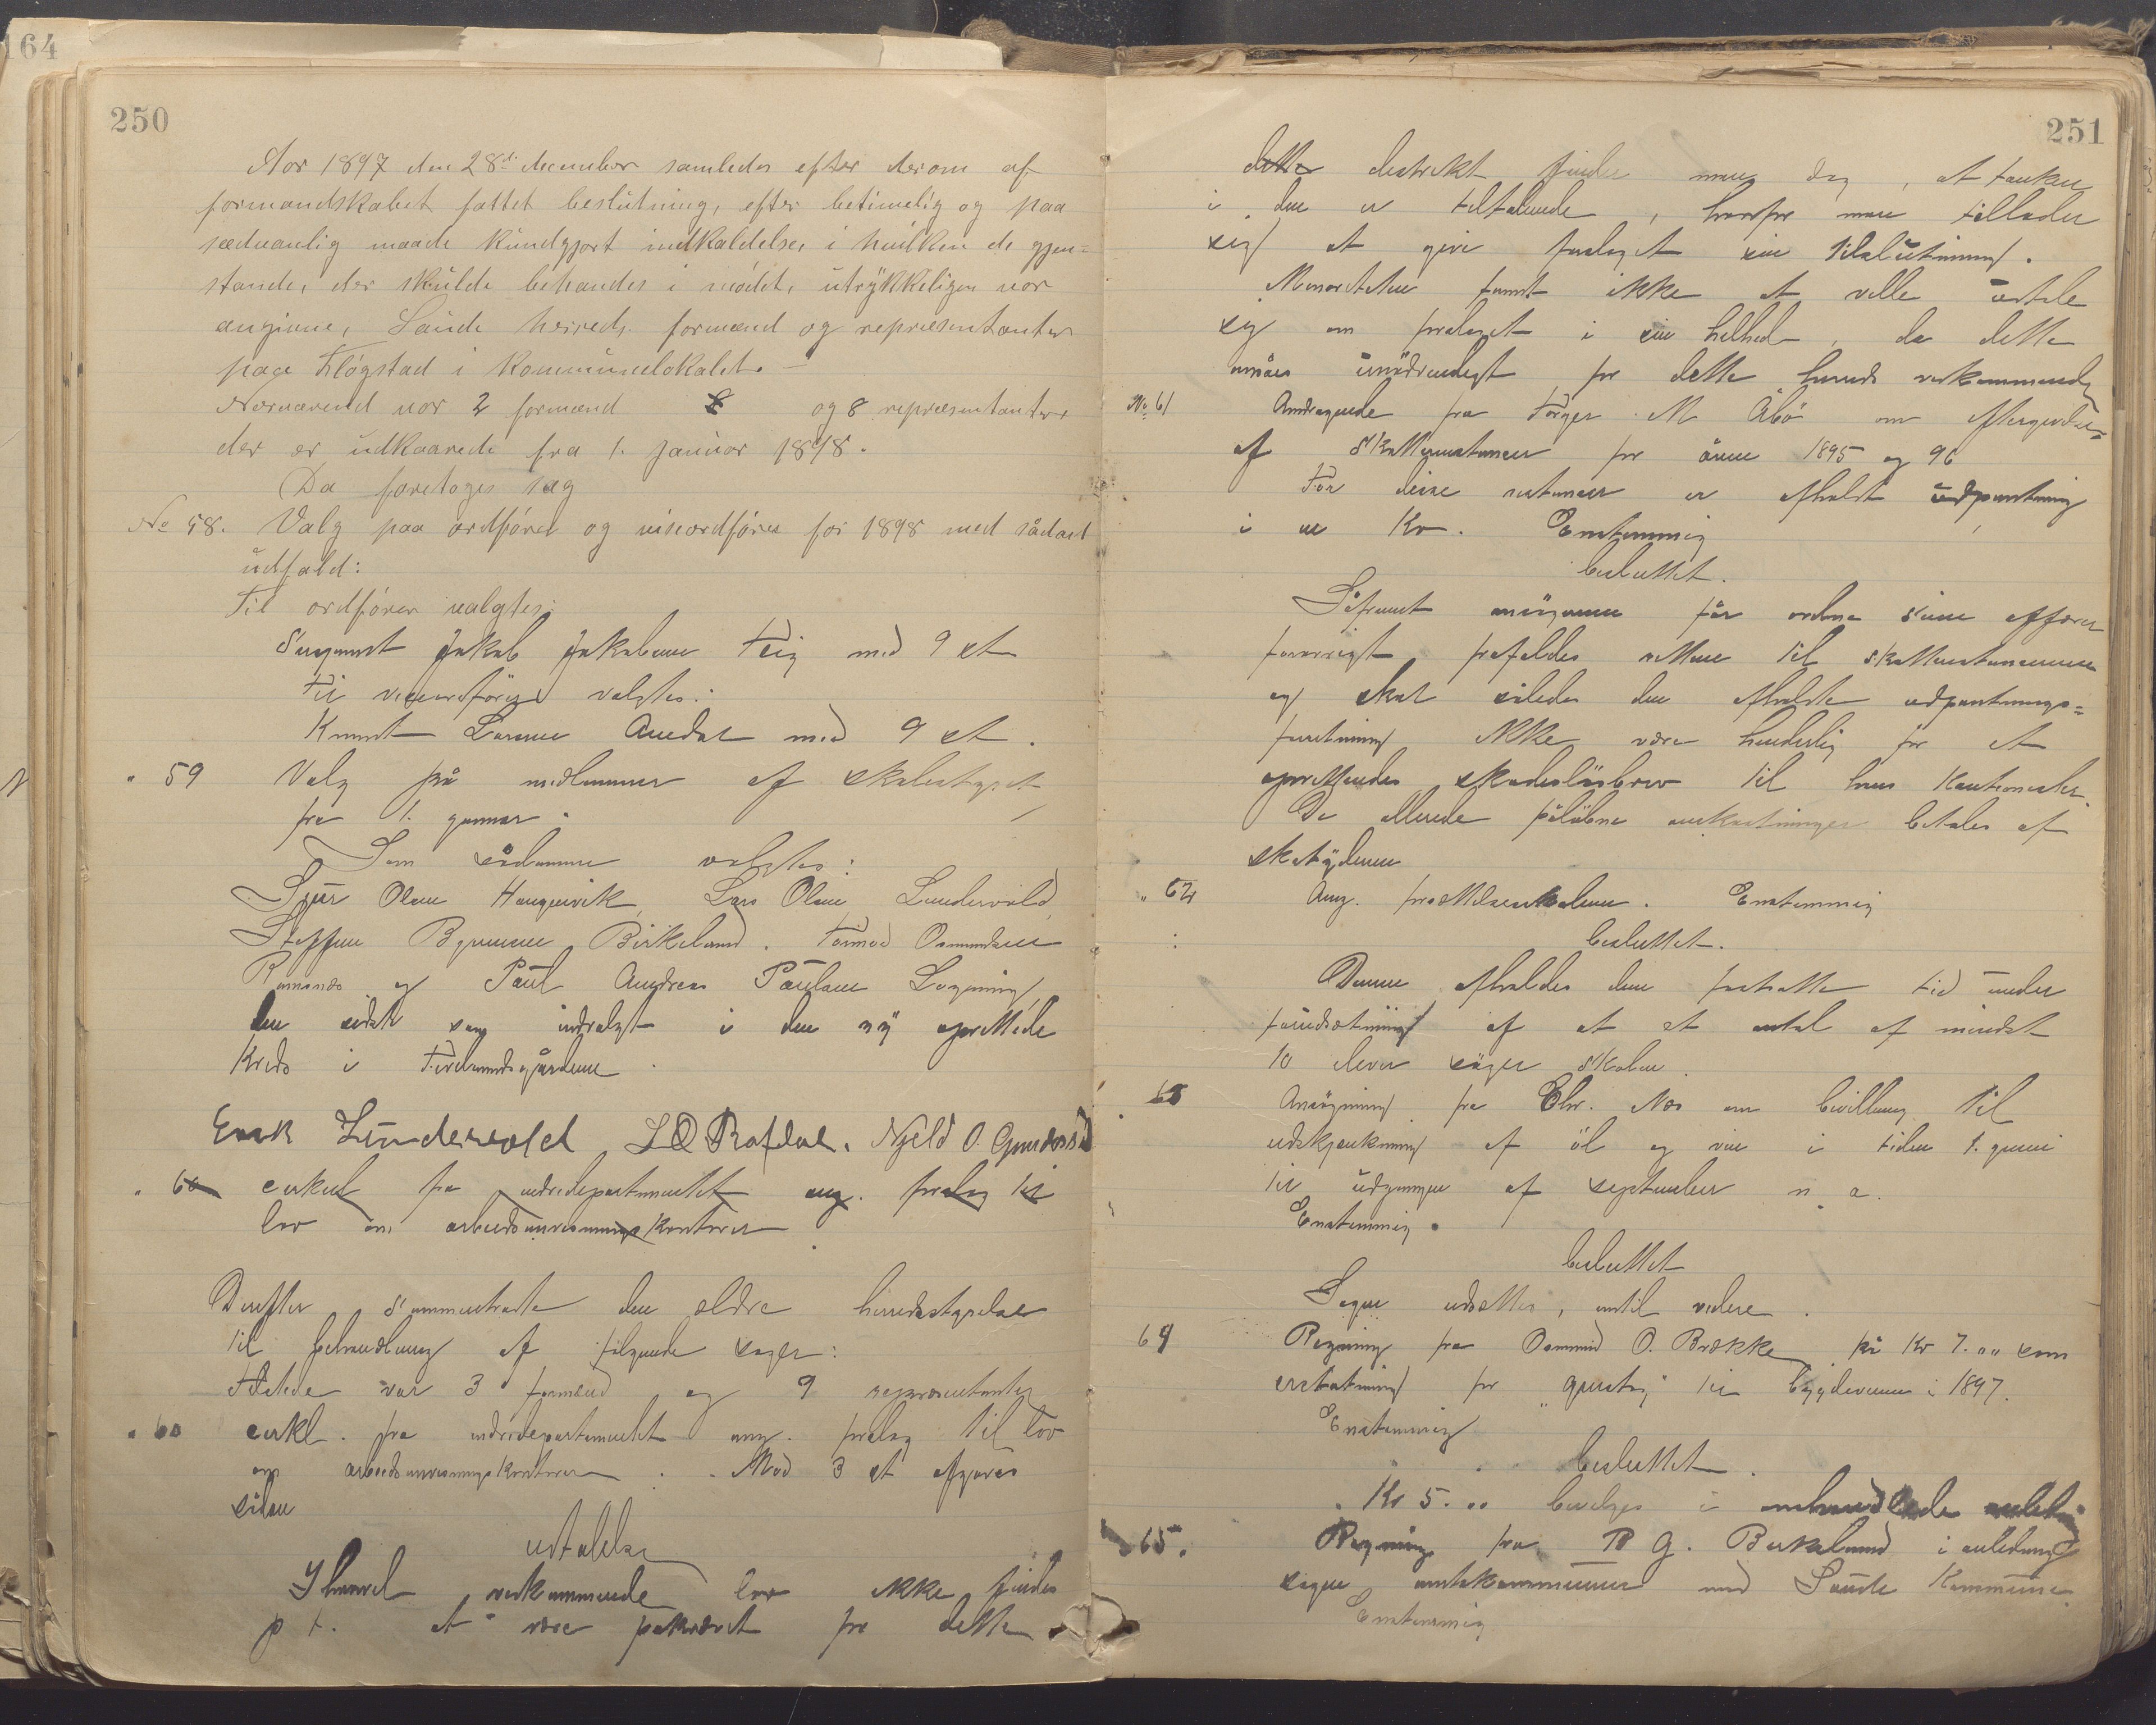 164
250
Aar 1897 den 28de december samledes efter derom af
formandskabet fattet beslutning, efter betimelig og paa
sædvanlig maade kundgjort indkaldelse, i hvilken de gjen=
stande, der skulde behandles i mödet, utrykkeligen var
angivne, Saude herreds formænd og repræsentanter
paa Fløgstad i kommunelokalet.
Nærværend var 2 formænd og 8 repræsentanter
der er udkaarede fra 1. januar 1898.
Da foretoges sag
No 58. Valg paa ordfører og viseordfører for 1898 med sådant
udfald:
Til ordfører valgtes:
Sergeant Jakob Jakobsen Teig med 9 st
Til viceordförer valgtes:
Knut Larsen Amdal med 9 st.
" 59 Valg på medlemmer af skolestyret
fra 1. januar.
Som sådanne valgtes:
Sjur Olsen Haugevik, Lars Olsen Lundervold,
Steffen Birkeland. Tormod Osmundsen
og Paul Andreas Paulsen
den sidste som indvalgt i den ny oprettede
kreds i
Lundervold L O Rafdal. Njeld O.
" 60 cirkul fra indredepartementet ang. forslag til
lov om arbeidsanvisningskontorer
Derefter sammentraadte den ældre herredsstyrelse
til behandlung af følgende sager:
Tilstede var 3 formænd og 9 repræsentanter
" 60 cirkl. fra indredepartementet ang. forslag til lov
om arbeidsanvisningskontorer. Mod 3 st afgaves
sådan
udtalelse
Ihvorvel vedkommende lov ikke findes
p t. at være påkrævet for dette
251
dette destrikt finder man dog, at tanken
i den er tiltalende, hvorfor man tillader
sig at give forslaget sin tilslutning.
Menoriteten fandt ikke at ville udtale
sig om forslaget i sin helhed, da dette
ansåes unödvendigt for dette herreds vedkommende
No 61 Andragende fra Törger M Åbö om eftergivelse
af skatterestancer for årene 1895 og 96
For disse restancer er afholdt udpantning
i Kr. Enstemmig
besluttet.
Såfremt ansögeren får ordne sine affærer
forövrigt, frafaldes retten til skatterestancerne
og skal således den afholdte udpantnings=
forretning ikke være hinderlig for et
oprettendes skadeslösbrev til hans kautionister.
De allerede påløbne omkostninger betales af
skatyderen
" 62 Ang. Enstemmig
besluttet.
Denne afholdes den fastsatte tid under
forudsætning af at et antal af mindst
10 elever söger skolen.
" 63 Ansögning fra Chr. Næs om bevilling til
udskjenkning af öl og vin i tiden 1. juni
til udgangen af september n. a.
Enstemmig.
besluttet
Sagen udsættes, indtil videre.
64 Regning fra Osmund O. Brække på Kr 7.00 som
erstatning for til bygdeveiene i 1897.
Enstemmig
besluttet.
Kr 5.00 bevilges i omhandlede anledning
" 65. Regning fra B G. Birkeland i anledning
sagen amtskommunen mod Saude Kommune.
Enstemmig